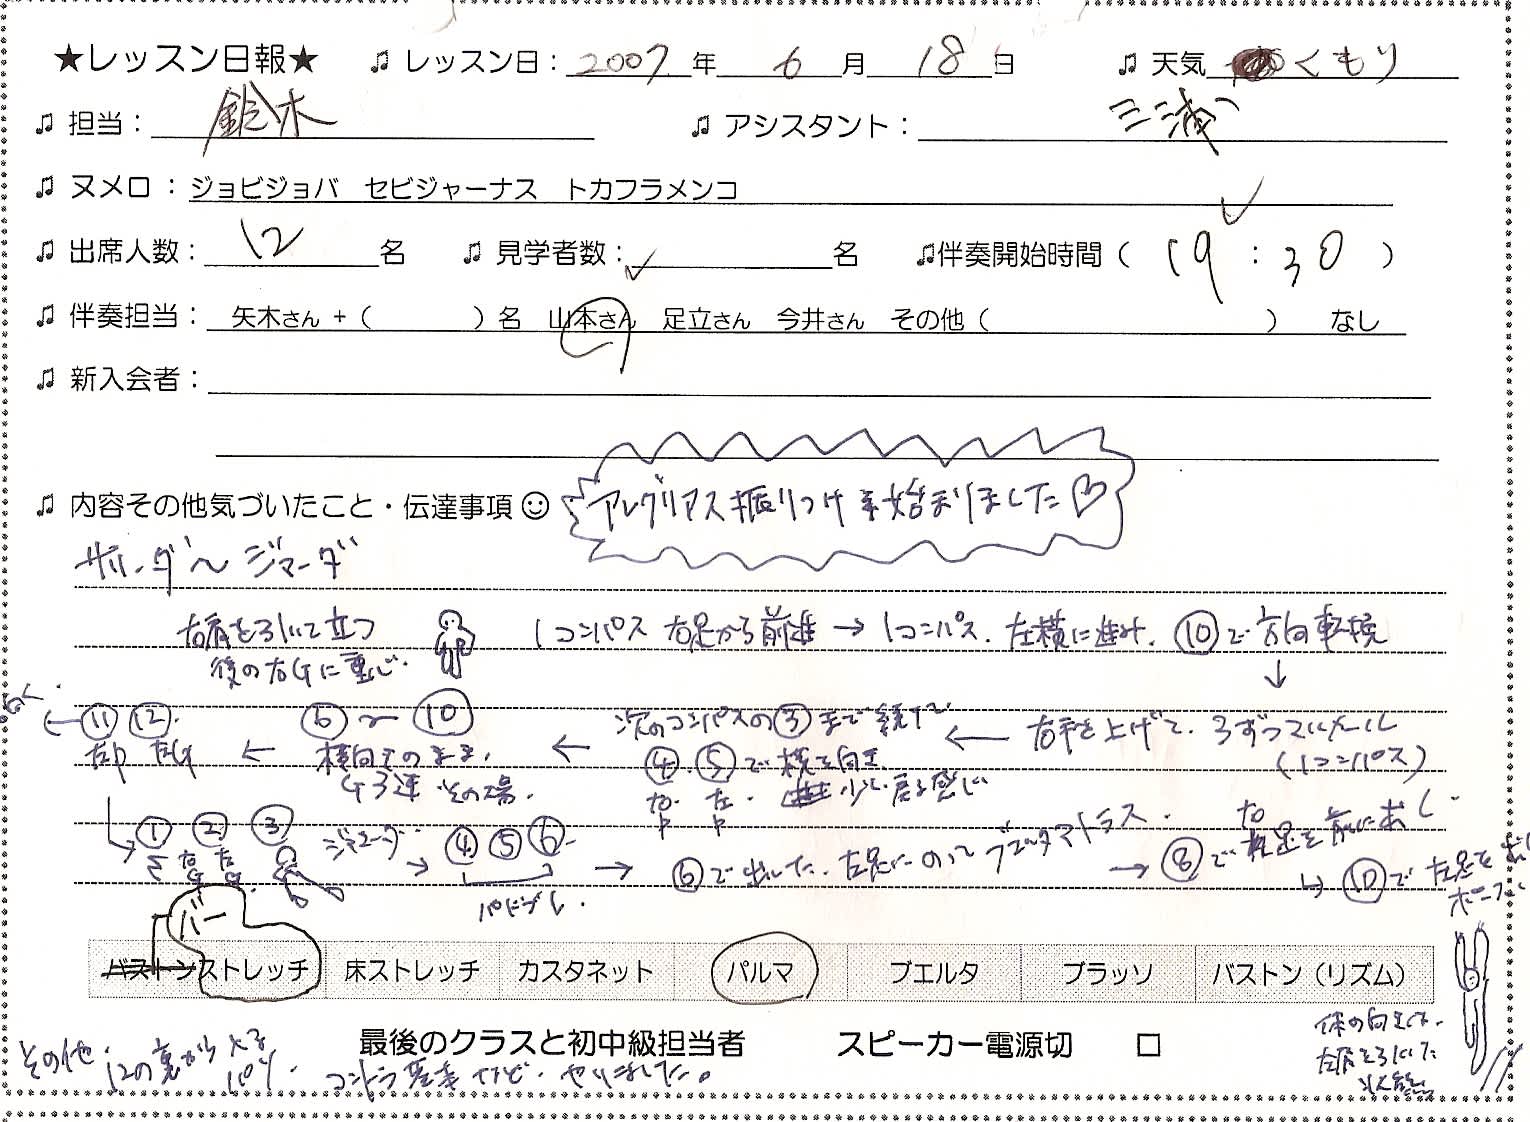 ★レッスン日報★ ♫ レッスン日： 2007 年 6 月 18 日 ♫ 天気 くもり
♫ 担当： 鈴木 ♫ アシスタント： 三浦
♫ ヌメロ： ジョビジョバ セビジャーナス トカフラメンコ
♫ 出席人数： 12 名 ♫ 見学者数： 名 ♫伴奏開始時間（ 19：30 ）
♫ 伴奏担当： 矢木さん＋（ ）名 山本さん 足立さん 今井さん その他（ ） なし
♫ 新入会者：
♫ 内容その他気づいたこと・伝達事項☺ アレグリアス振りつけ始まりました♡
サリーダ〜ジマーダ
右肩を引いて立つ 1コンパス 右足から前進 → 1コンパス、左横に進み、⑩で方向転換
後の右に重心． ↓
← ⑪ ⑫． ⑥〜⑩ 次のコンパスの③まで続けて ← 右手を上げて、3ずつマルカール
← 横向きのまま、 ← ④ ⑤で横を向き （1コンパス）
3連 その場． 右 左 少し戻る感じ
① ② ③ ジマーダ → ④ ⑤ ⑥ → ⑥で出した、左足にのってブエルタマトラス． → ⑧で 右足を前に出し
↳ ⑩で 左足を
パドブレ．
バー
バストンストレッチ 床ストレッチ カスタネット パルマ ブエルタ ブラッソ バストン（リズム）
最後のクラスと初中級担当者 スピーカー電源切 □
その他． 12の裏から入る パルマ． コントラ 基本 など．やりました。
体の向きは、
左肩を引いた
状態